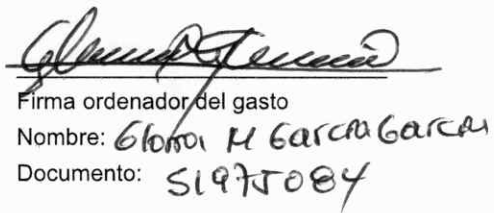 Firma ordenador del gasto
Nombre: Gloria M Garcia Garcia
Documento: 51975084